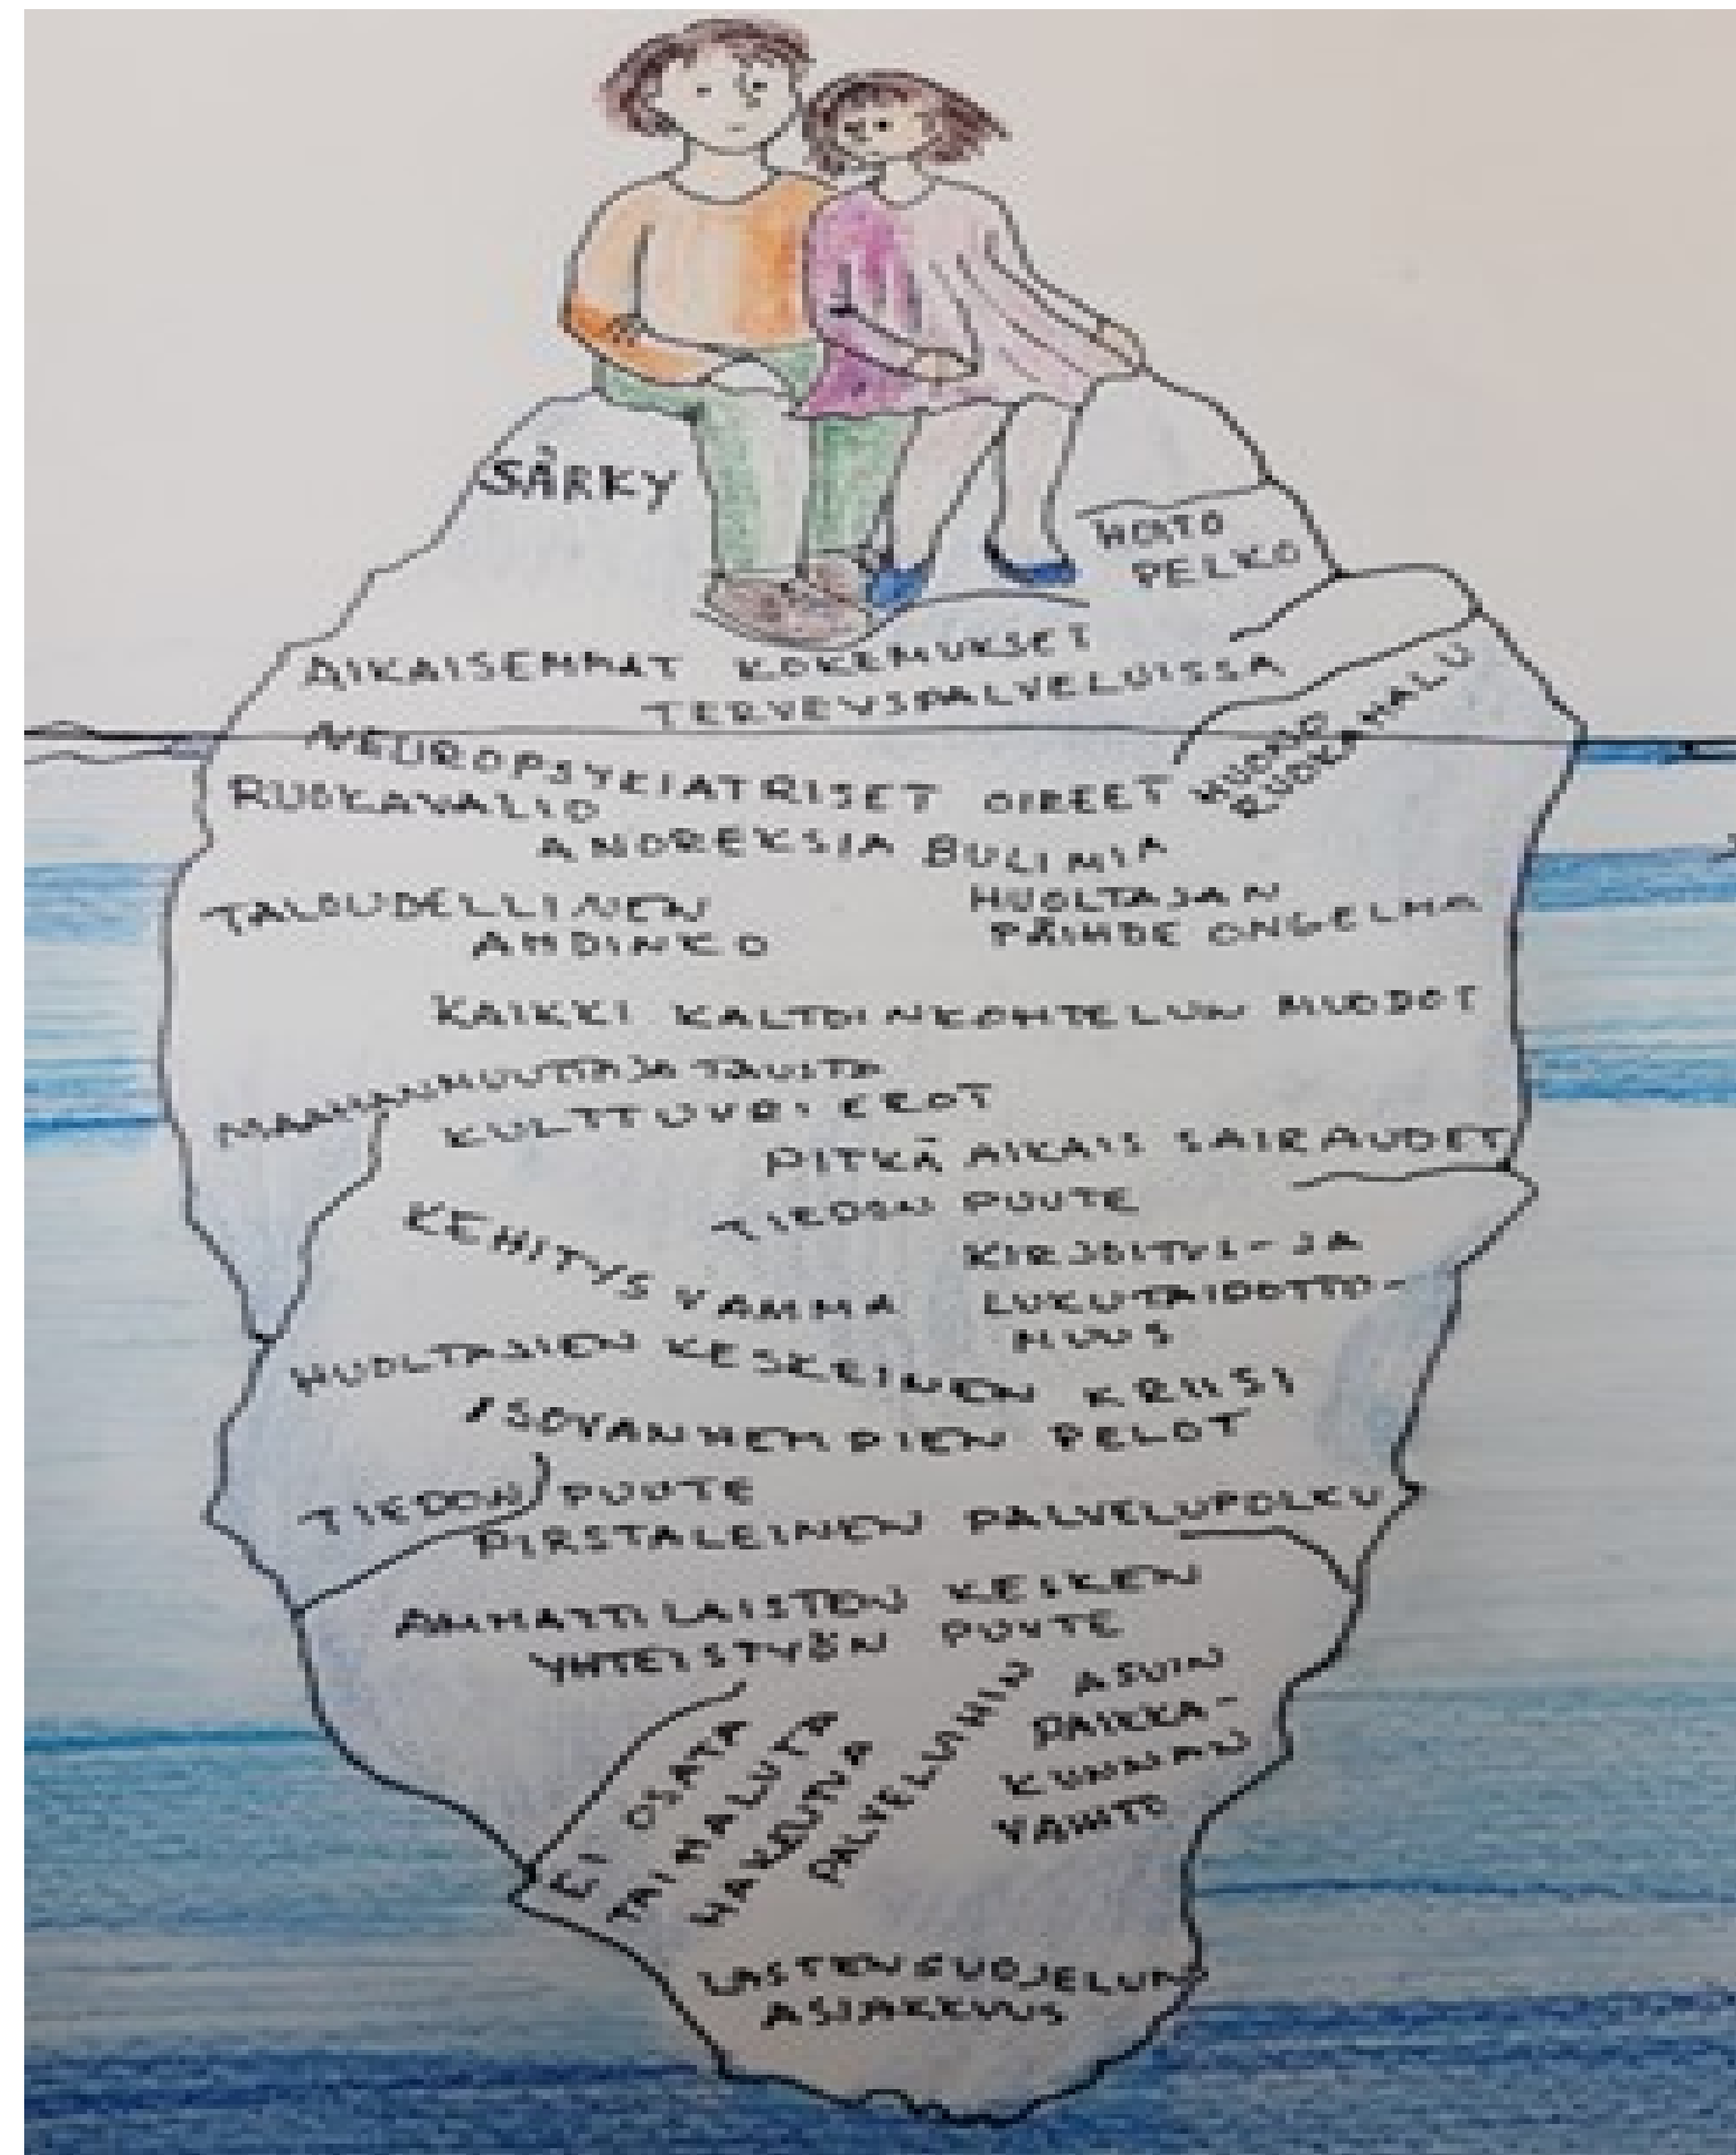 SÄRKY
HOITO
PELKO
AIKAISEMMAT KOKEMUKSET
TERVEYSPALVELUISSA
NEUROPSYKIATRISET OIREET
HUONO
RUOKAHALU
RUOKAVALIO
ANOREKSIA BULIMIA
TALOUDELLINEN
AHDINKO
HUOLTAJAN
PÄIHDE ONGELMA
KAIKKI KALTOINKOHTELUN MUODOT
MAAHANMUUTTAJA TAUSTA
KULTTUURI EROT
PITKÄ AIKAIS SAIRAUDET
TIEDON PUUTE
KEHITYS VAMMA
KIRJOITUS- JA
LUKUTAIDOTTO-
MUUS
HUOLTAJIEN KESKEINEN KRIISI
ISOVANHEMPIEN PELOT
TIEDON PUUTE
PIRSTALEINEN PALVELUPOLKU
AMMATTILAISTEN KESKEN
YHTEISTYÖN PUUTE
EI OSATA
TAI HALUTA
HAKEUTUA
PALVELUIHIN
ASUIN
PAIKKA-
KUNNAN
VAIHTO
LASTENSUOJELUN
ASIAKKUUS